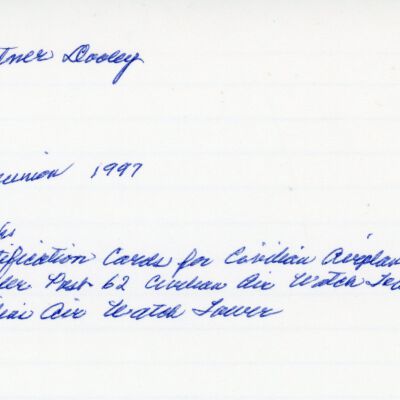 tner Dooley
union 1997
tification Cards for Civilian Airplan
Post 62 Civilian Air Watch
Air Watch Tower